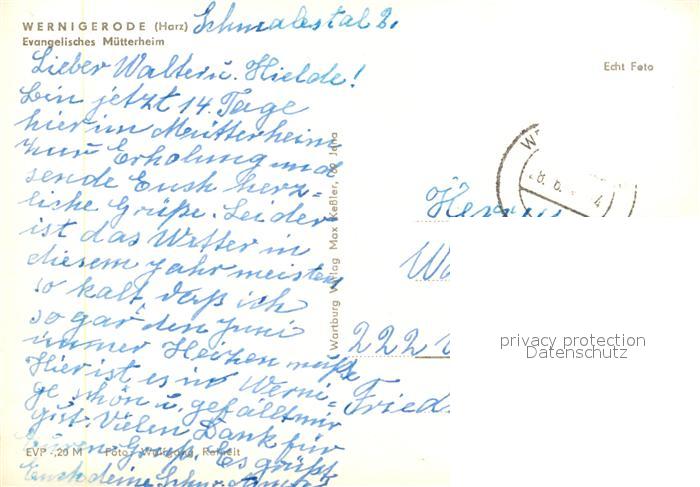 WERNIGERODE (Harz) Schmalestal 2.
Evangelisches Mütterheim
Echt Foto
Lieber Walter u. Hielde!
bin jetzt 14 Tage
hier im Mütterheim
zur Erholung und
sende Euch herz-
liche Grüße. Leider
ist das Wetter in
diesem Jahr meistens
so kalt, daß ich
so gar den Juni
immer Heizen mußte
Hier ist es in Werni-
ge schön u. gefällt mir
gut. Vielen Dank für
Euren Gruß. Es grüßt
Euch deine
EVP -,20 M Foto: Wolfgang
Wartburg Verlag Max Keßler, 69 Jena
28. 6.
Herrn
222
privacy protection
Datenschutz